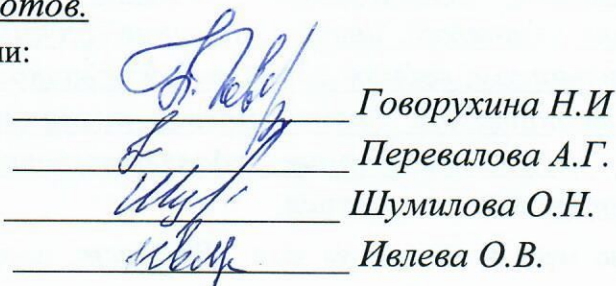 отов.
ии:
Говорухина Н.И
Перевалова А.Г.
Шумилова О.Н.
Ивлева О.В.